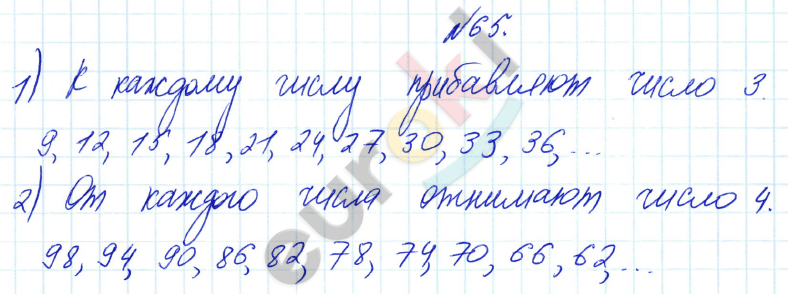 №65.
1) К каждому числу прибавляют число 3.
9, 12, 15, 18, 21, 24, 27, 30, 33, 36, ...
2) От каждого числа отнимают число 4.
98, 94, 90, 86, 82, 78, 74, 70, 66, 62, ...
euroki